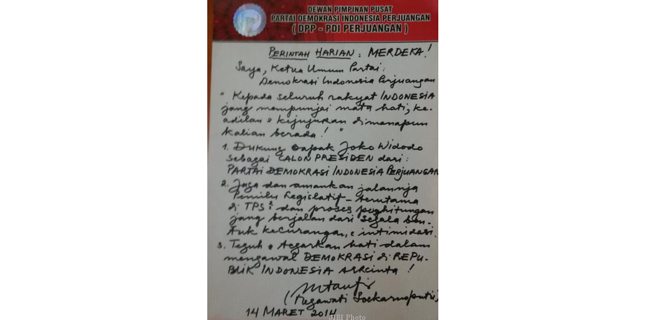 DEWAN PIMPINAN PUSAT
PARTAI DEMOKRASI INDONESIA PERJUANGAN
( DPP - PDI PERJUANGAN )
PERINTAH HARIAN : MERDEKA !
Saya, Ketua Umum Partai
Demokrasi Indonesia Perjuangan
" Kepada seluruh rakyat INDONESIA
jang mempunjai mata hati, ke-
adilan & kejujuran dimanapun
kalian berada ! "
1. Dukung Bapak Joko Widodo
sebagai CALON PRESIDEN dari :
PARTAI DEMOKRASI INDONESIA PERJUANGAN
2. Jaga dan amankan jalannja
Pemilu Legislatif - terutama
di TPS² dan proses penghitungan
jang berjalan dari segala ben-
tuk kecurangan, & intimidasi.
3. Teguh & tegarkan hati dalam
mengawal DEMOKRASI di REPU-
BLIK INDONESIA tercinta !
( Megawati Soekarnoputri )
14 MARET 2014
Photo